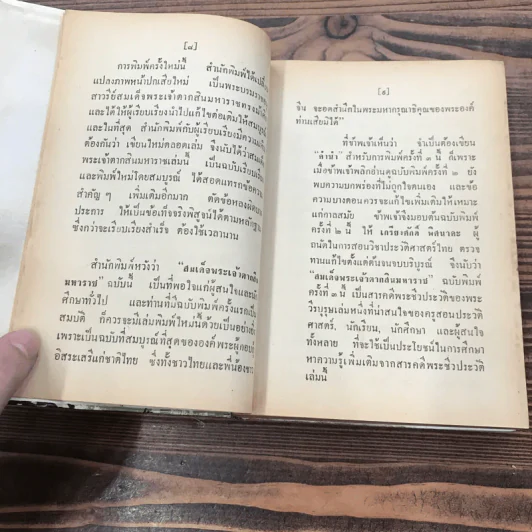 [๘]
การพิมพ์ครั้งใหม่นี้ สำนักพิมพ์ได้เปลี่ยน
แปลงภาพหน้าปกเสียใหม่ เป็นพระบรมราชา
สาวรีย์สมเด็จพระเจ้าตากสินมหาราชทรงม้า
และได้ให้ผู้เรียบเรียงนำไปแก้ไขต่อเติมให้สมบูรณ์
และในที่สุด สำนักพิมพ์กับผู้เรียบเรียงมีความเห็น
ต้องกันว่า เขียนใหม่ตลอดเล่ม จึงนับได้ว่าสมเด็จ
พระเจ้าตากสินมหาราชเล่มนี้ เป็นฉบับเรียบเรียง
และพิมพ์ใหม่โดยสมบูรณ์ ได้สอดแทรกข้อความ
สำคัญๆ เพิ่มเติมอีกมาก ตัดข้อหลงผิดออก
ประการ ให้เป็นข้อเท็จจริงพิสูจน์ได้ตามหลักฐาน
ซึ่งกว่าจะเรียบเรียงสำเร็จ ต้องใช้เวลานาน
สำนักพิมพ์หวังว่า "สมเด็จพระเจ้าตากสิน
มหาราช" ฉบับนี้ เป็นที่พอใจแก่ผู้สนใจและนัก
ศึกษาทั่วไป และท่านที่มีฉบับพิมพ์ครั้งแรกเป็น
สมบัติ ก็ควรจะมีเล่มพิมพ์ใหม่นี้ด้วยเป็นอย่างยิ่ง
เพราะเป็นฉบับที่สมบูรณ์ที่สุดขององค์พระผู้กอบกู้
อิสระเสรีแก่ชาติไทย ซึ่งทั้งชาวไทยและพี่น้องชาว
[๙]
จีน จะอดสำนึกในพระมหากรุณาธิคุณของพระองค์
ท่านเสียมิได้"
ที่ข้าพเจ้าเห็นว่า จำเป็นต้องเขียน
"คำนำ" สำหรับการพิมพ์ครั้งที่ ๓ นี้ ก็เพราะ
เมื่อข้าพเจ้าพลิกอ่านดูฉบับพิมพ์ครั้งที่ ๒ ยัง
พบความบกพร่องที่ไม่ถูกใจตนเอง และข้อ
ความบางตอนควรจะแก้ไขเพิ่มเติมให้เหมาะ
แก่กาลสมัย ข้าพเจ้าจึงมอบต้นฉบับพิมพ์
ครั้งที่ ๒ นี้ ให้ เกรียงศักดิ์ พิศนาคะ ผู้
ถนัดในการสอนวิชาประวัติศาสตร์ไทย ตรวจ
ทานแก้ไขตั้งแต่ต้นจนจบบริบูรณ์ จึงนับว่า
"สมเด็จพระเจ้าตากสินมหาราช" ฉบับพิมพ์
ครั้งที่ ๓ นี้ เป็นสารคดีพระชีวประวัติของพระ
วีรบุรุษเล่มหนึ่งที่น่าสนใจของครูสอนประวัติ
ศาสตร์, นักเรียน, นักศึกษา และผู้สนใจ
ทั้งหลาย ที่จะใช้เป็นประโยชน์ในการศึกษา
หาความรู้เพิ่มเติมจากสารคดีพระชีวประวัติ
เล่มนี้